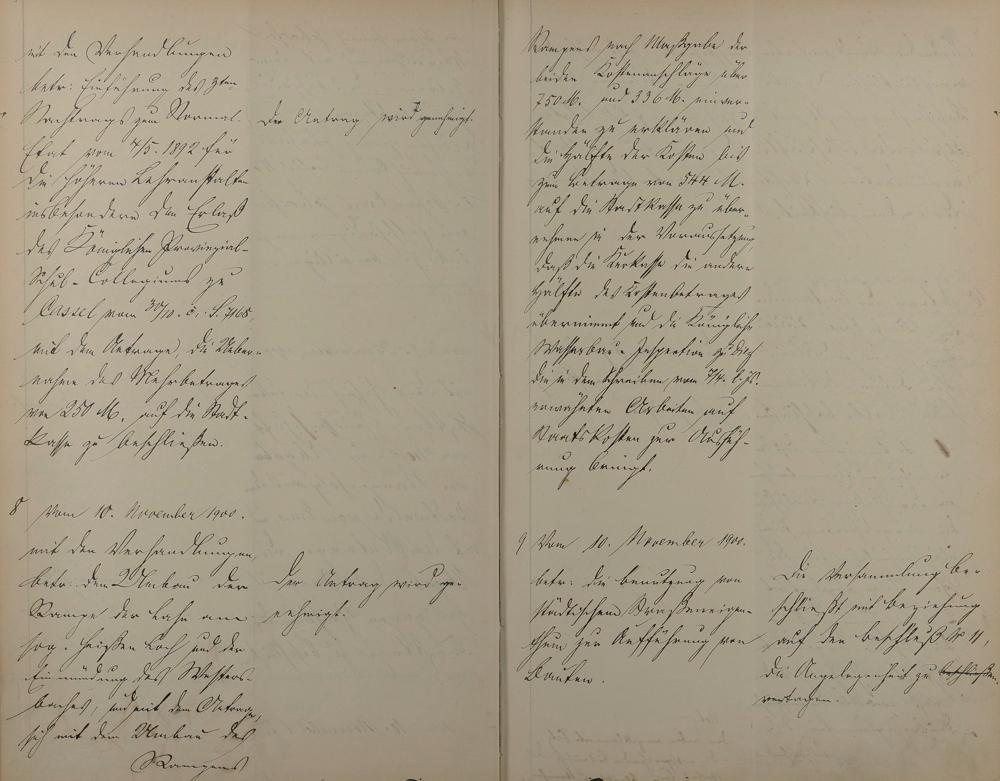 mit den Verhandlungen
betr: Einführung des 3ten
Nachtrags zum Normal-
Etat vom 4/5. 1892 für
die höheren Lehranstalten
insbesondere den Erlaß
des Königlichen Provinzial-
Schul-Collegiums zu
Cassel vom 30/10. c. S. 7168
mit dem Antrage, die Ueber-
nahme des Mehrbetrages
von 250 M. auf die Stadt-
kasse zu beschließen.
Der Antrag wird genehmigt.
8 Vom 10. November 1900.
mit den Verhandlungen
betr: den Umbau der
Rampe der Lahn am
sog. heißen Loch und der
Einmündung des
baches, und mit dem Antrag,
sich mit dem Umbau des
Rampens
Der Antrag wird ge-
nehmigt.
Rampens nach Maßgabe der
beiden Kostenanschläge über
750 M. und 336 M. einver-
standen zu erklären und
die Hälfte der Kosten bis
zum Betrage von 544 M.
auf die Stadtkasse zu über-
nehmen in der Voraussetzung
daß die Kurkasse die andere
Hälfte des Kostenbetrages
übernimmt und die Königliche
Wasserbau-Inspection zu Diez
die in dem Schreiben vom 7/4. l. Js.
erwähnten Arbeiten auf
Staatskosten zur Ausfüh-
rung bringt.
9 Vom 10. November 1900.
betr: die Benutzung von
städtischem Straßeneigen-
thum zur Aufführung von
Bauten.
Die Versammlung be-
schließt mit Beziehung
auf den Beschluß No 11,
die Angelegenheit zu beschließen.
vertagen.